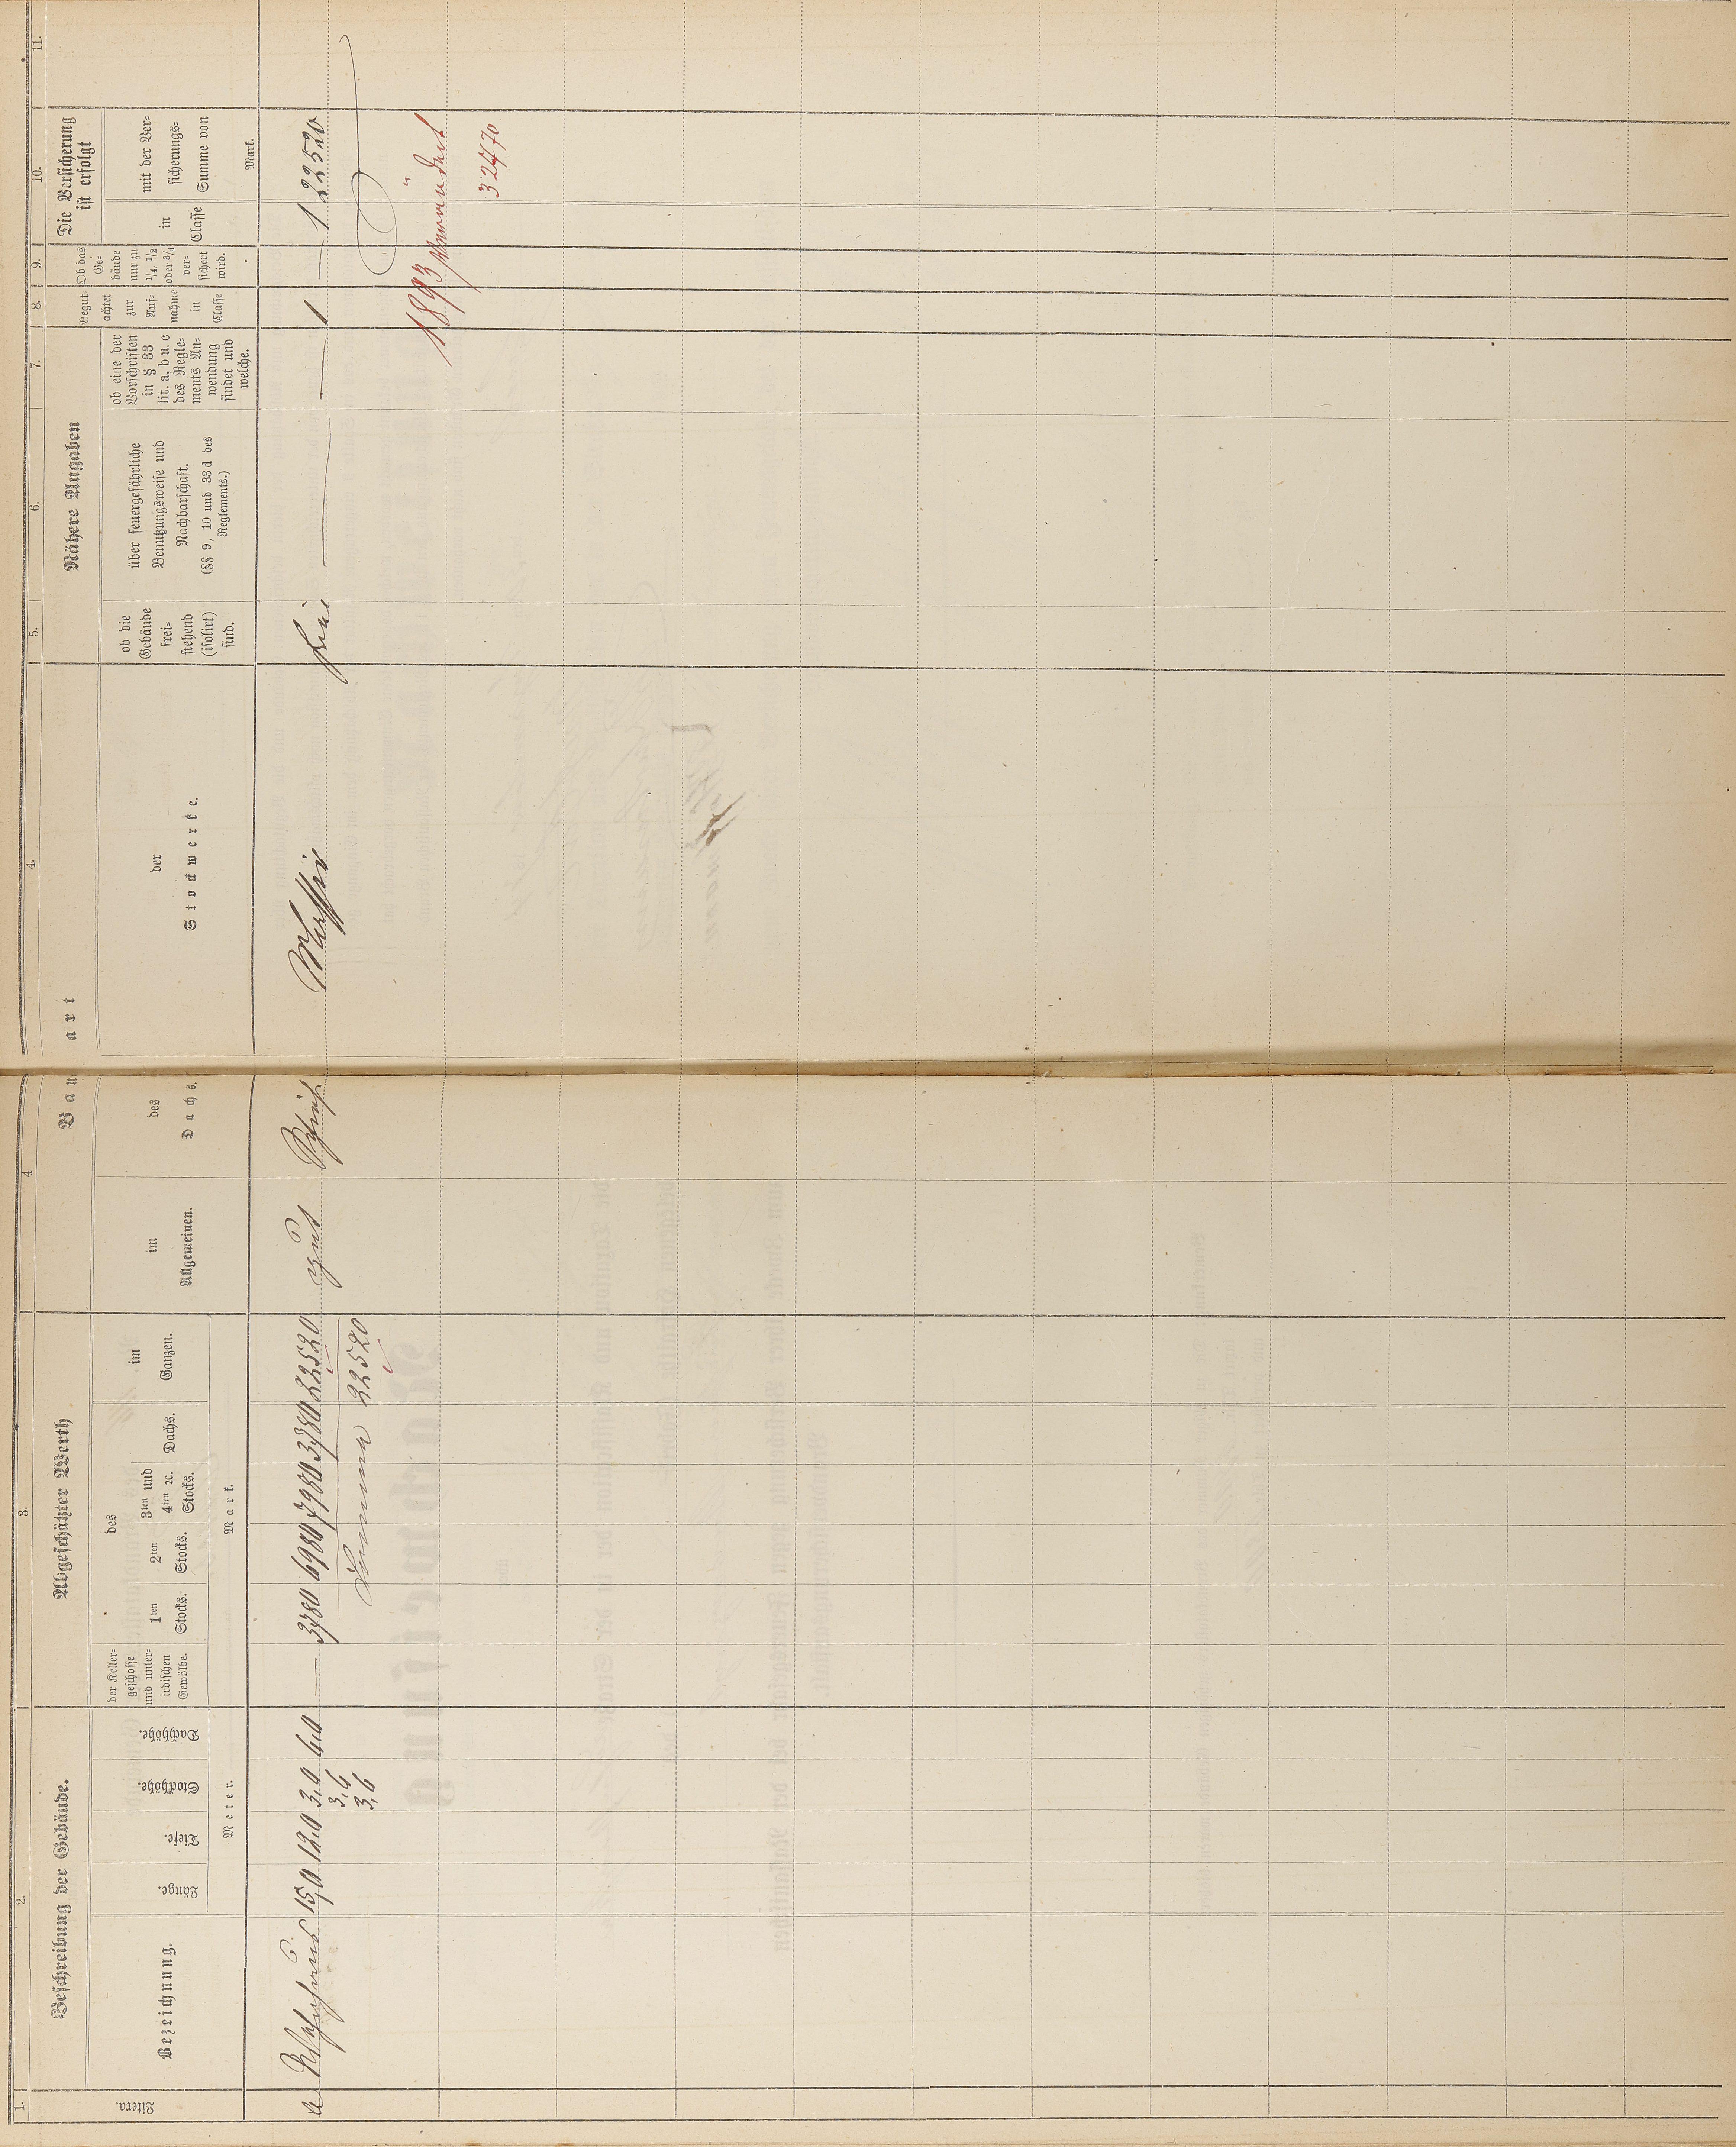 1. 2. 3. 4
Litera. Beschreibung der Gebäude. Abgeschätzter Werth Bau
Bezeichnung. Länge. Tiefe. Stockhöhe. Dachhöhe.
Meter.
der Keller-
geschosse
und unter-
irdischen
Gewölbe.
des
1ten
Stocks.
2ten
Stocks.
3ten und
4ten ꝛc.
Stocks.
Dachs.
im
Ganzen.
Mark.
im
Allgemeinen.
des
Dachs.
4. 5. 6. 7. 8. 9. 10. 11.
art
der
Stockwerke.
Nähere Angaben
ob die
Gebäude
frei-
stehend
(isolirt)
sind.
über feuergefährliche
Benutzungsweise und
Nachbarschaft.
(§§ 9, 10 und 33d des
Reglements.)
ob eine der
Vorschriften
in § 33
lit. a, b u. c
des Regle-
ments An-
wendung
findet und
welche.
Begut-
achtet
zur
Auf-
nahme
in
Classe
Ob das
Ge-
bäude
nur zu
1/4, 1/2
oder 3/4
ver-
sichert
wird.
Die Versicherung
ist erfolgt
in
Classe
mit der Ver-
sicherungs-
Summe von
Mark.
a Wohnhaus 15,0 12,0 3,0 4,0 — 3780 6980 7980 3780 22520 gut Schief. Massiv frei — — 1 — 1 22520
3,6
3,6
Summa 22520
1893 verändert
32470